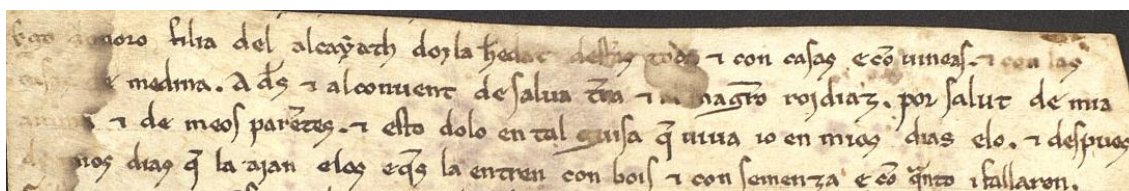 filia del alcayath do la hedat & con casas e cõ vineas. & con las
de medina. A dš & al convent de salva tr̃ra & magr̃o roi diaz. por salut de mia
& de meos parẽtes. & esto dolo en tal guisa q̃ viva io en mios dias elo. & despues
dias q̃ la aian elos e q̃s la entren con bois & con semenza e cõ q̃nto i fallaron.